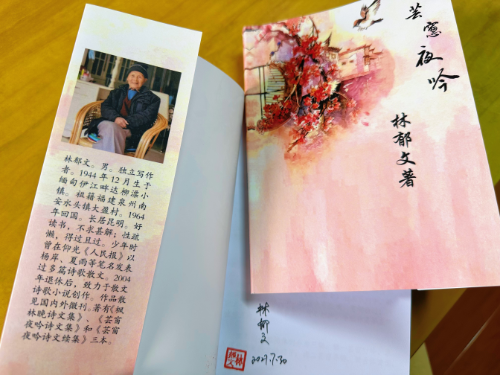 林郁文。男。独立写作
者。1944年12月生于
缅甸伊江畔达柳漂小
镇。祖籍福建泉州南
安水头镇大盈村。1964
年回国。长居昆明。好
读书,不求甚解;性疏
懒,得过且过。少年时
曾在仰光《人民报》以
杨岸、夏雨等笔名发表
过多篇诗歌散文。2004
年退休后,致力于散文
诗歌小说创作。作品散
见国内外微刊。著有《枫
林晚诗文集》、《芸窗
夜吟诗文集》和《芸窗
夜吟诗文续集》三本。
芸窗夜吟
林郁文著
林郁文
2021.7.30